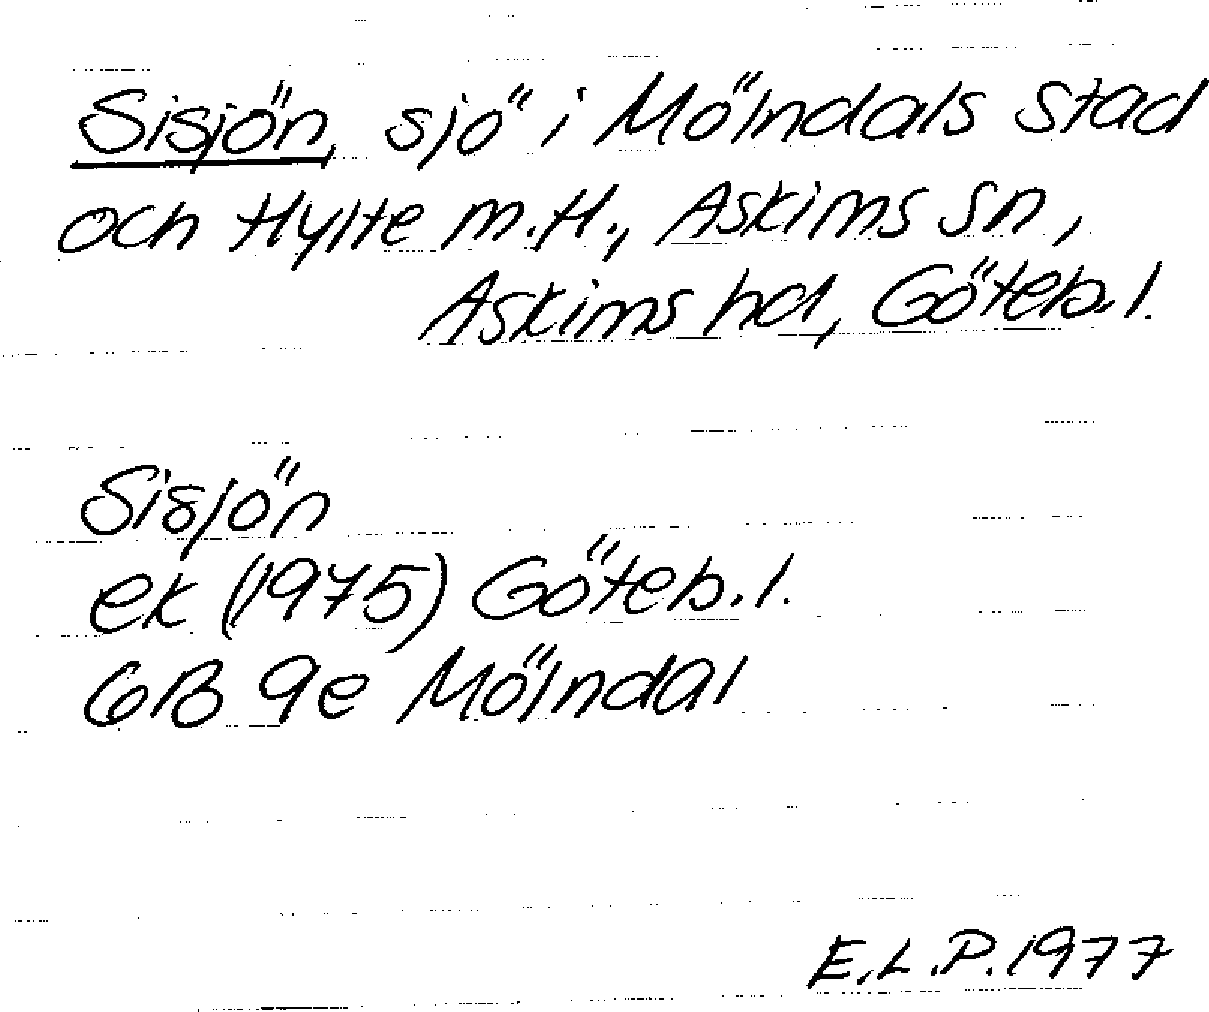 Sisjön, sjö i Mölndals stad
och Hylte m.fl., Askims sn,
Askims hd, Göteb.l.
Sisjön
ek (1975) Göteb.l.
6B 9e Mölndal
E.L.P. 1977